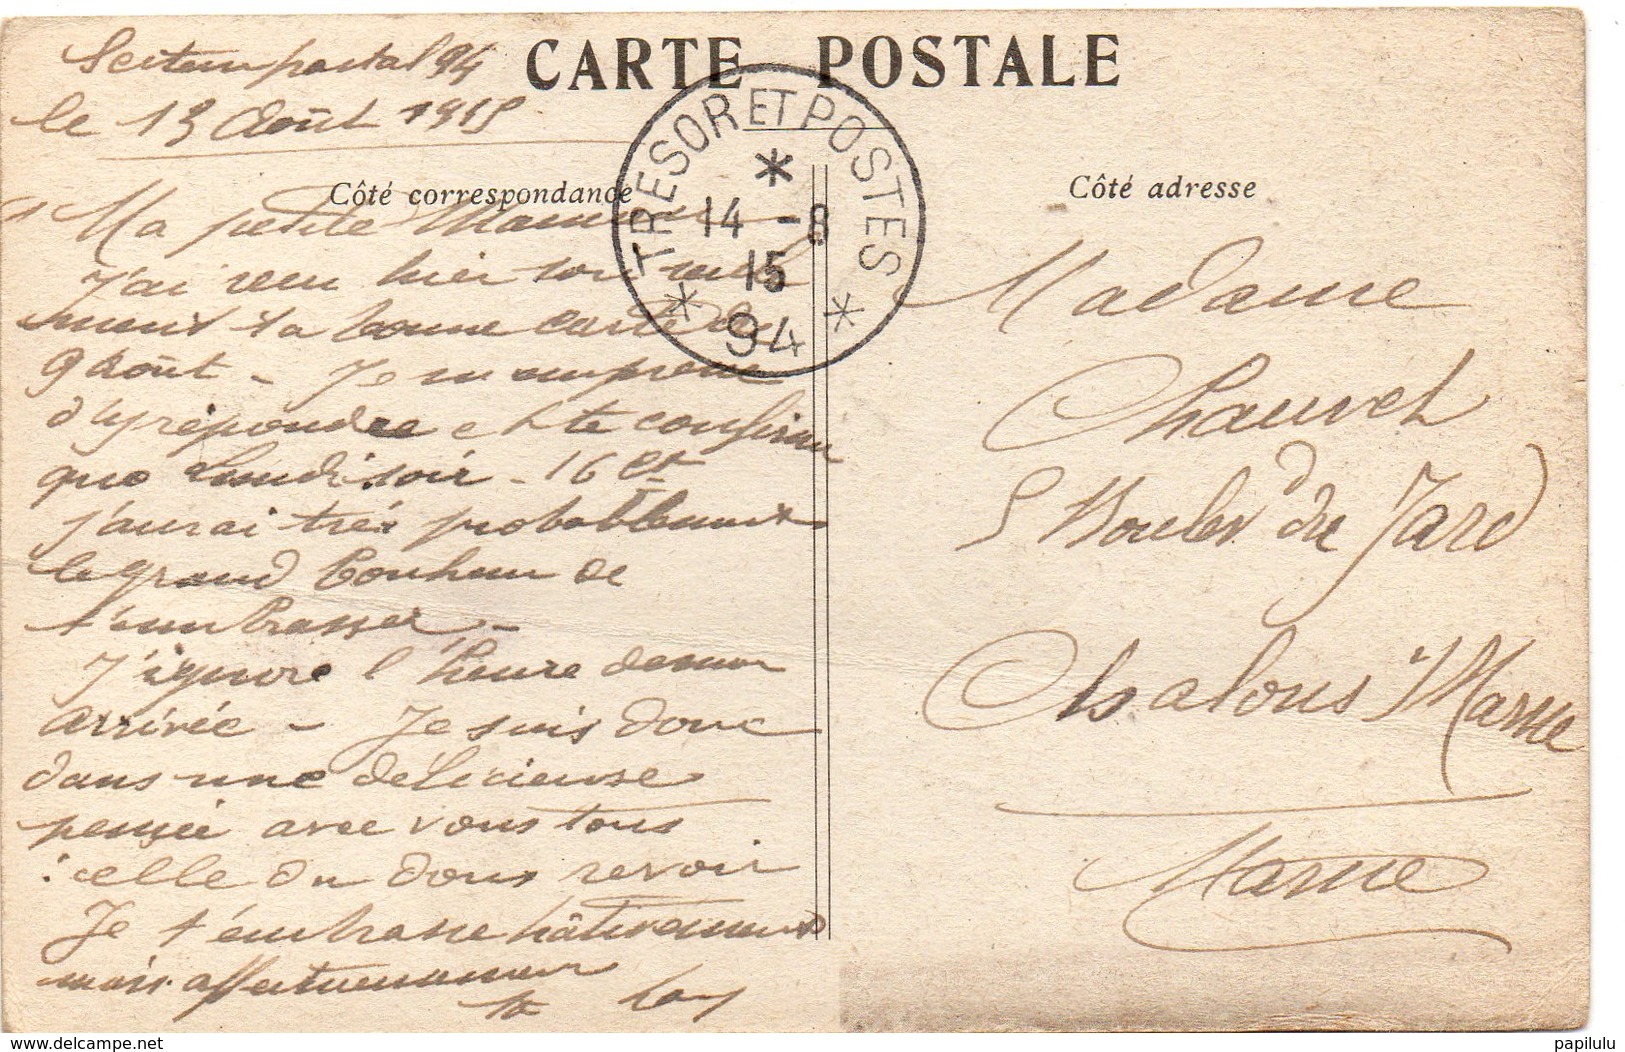 CARTE POSTALE
Secteur postal 94
le 13 Août 1915
Côté correspondance
Ma petite Maman
J'ai reçu hier soir seule
ment ta bonne carte du
9 Août - Je m'empresse
d'y répondre et te confirme
que Lundi soir - 16 ct
j'aurai très probablement
le grand bonheur de
t'embrasser -
J'ignore l'heure de mon
arrivée - Je suis donc
dans une délicieuse
pensée avec vous tous
: celle du doux revoir
Je t'embrasse hâtivement
mais affectueusement
TRESOR ET POSTES
14 -8
15
94
Côté adresse
Madame
Chauvet
5 Boulev du Jard
Chalons s/Marne
Marne
www.delcampe.net
papilulu